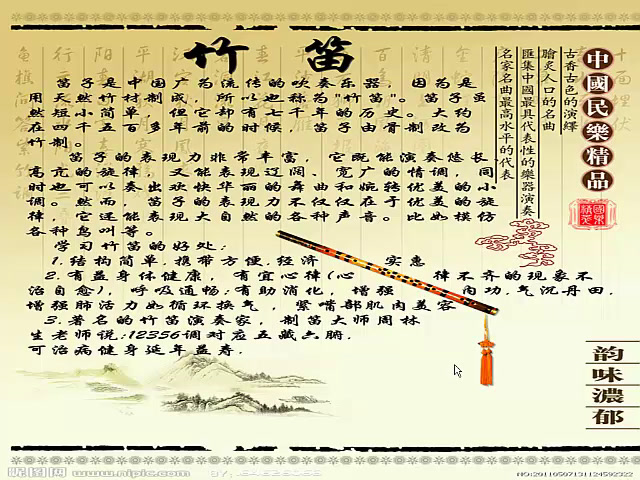 竹 笛
笛子是中国广为流传的吹奏乐器，因为是
用天然竹材制成，所以也称为"竹笛"。笛子虽
然短小简单，但它却有七千年的历史。大约
在四千五百多年前的时候，笛子由骨制改为
竹制。
笛子的表现力非常丰富，它既能演奏悠长、
高亢的旋律，又能表现辽阔、宽广的情调，同
时也可以奏出欢快华丽的舞曲和婉转优美的小
调。然而，笛子的表现力不仅仅在于优美的旋
律，它还能表现大自然的各种声音。比如模仿
各种鸟叫等。
学习竹笛的好处：
1.结构简单.携带方便.经济 实惠
2.有益身体健康，有宜心律(心 律不齐的现象不
治自愈)，呼吸通畅;有助消化，增强 内功.气沉丹田.
增强肺活力如循环换气，紧嘴部肌肉美容
3.著名的竹笛演奏家，制笛大师周林
生老师说:12356调对应五藏六腑.
可治病健身延年益寿.
中國民樂精品
古香古色的演繹
膾炙人口的名曲
匯集中國最具代表性的樂器演奏
名家名曲最高水平的代表
韵
味
濃
郁
昵图网 www.nipic.com
NO:20110507131124592322